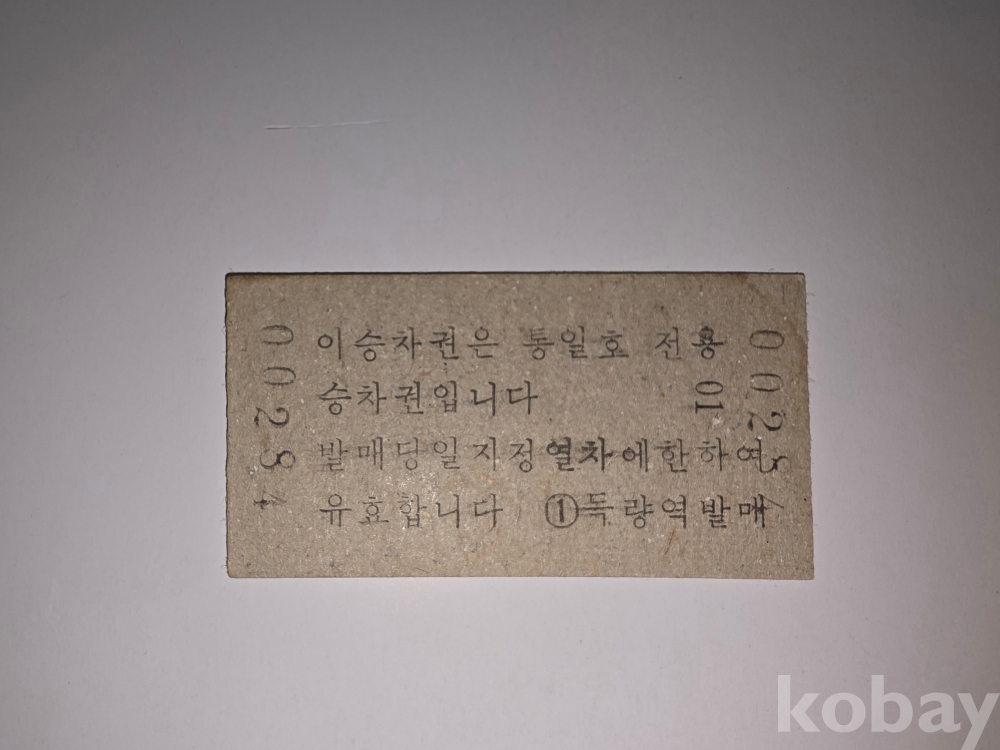 이승차권은 통일호 전용
승차권입니다
발매당일지정열차에한하여
유효합니다 ①득량역발매
01
0028
0028
kobay